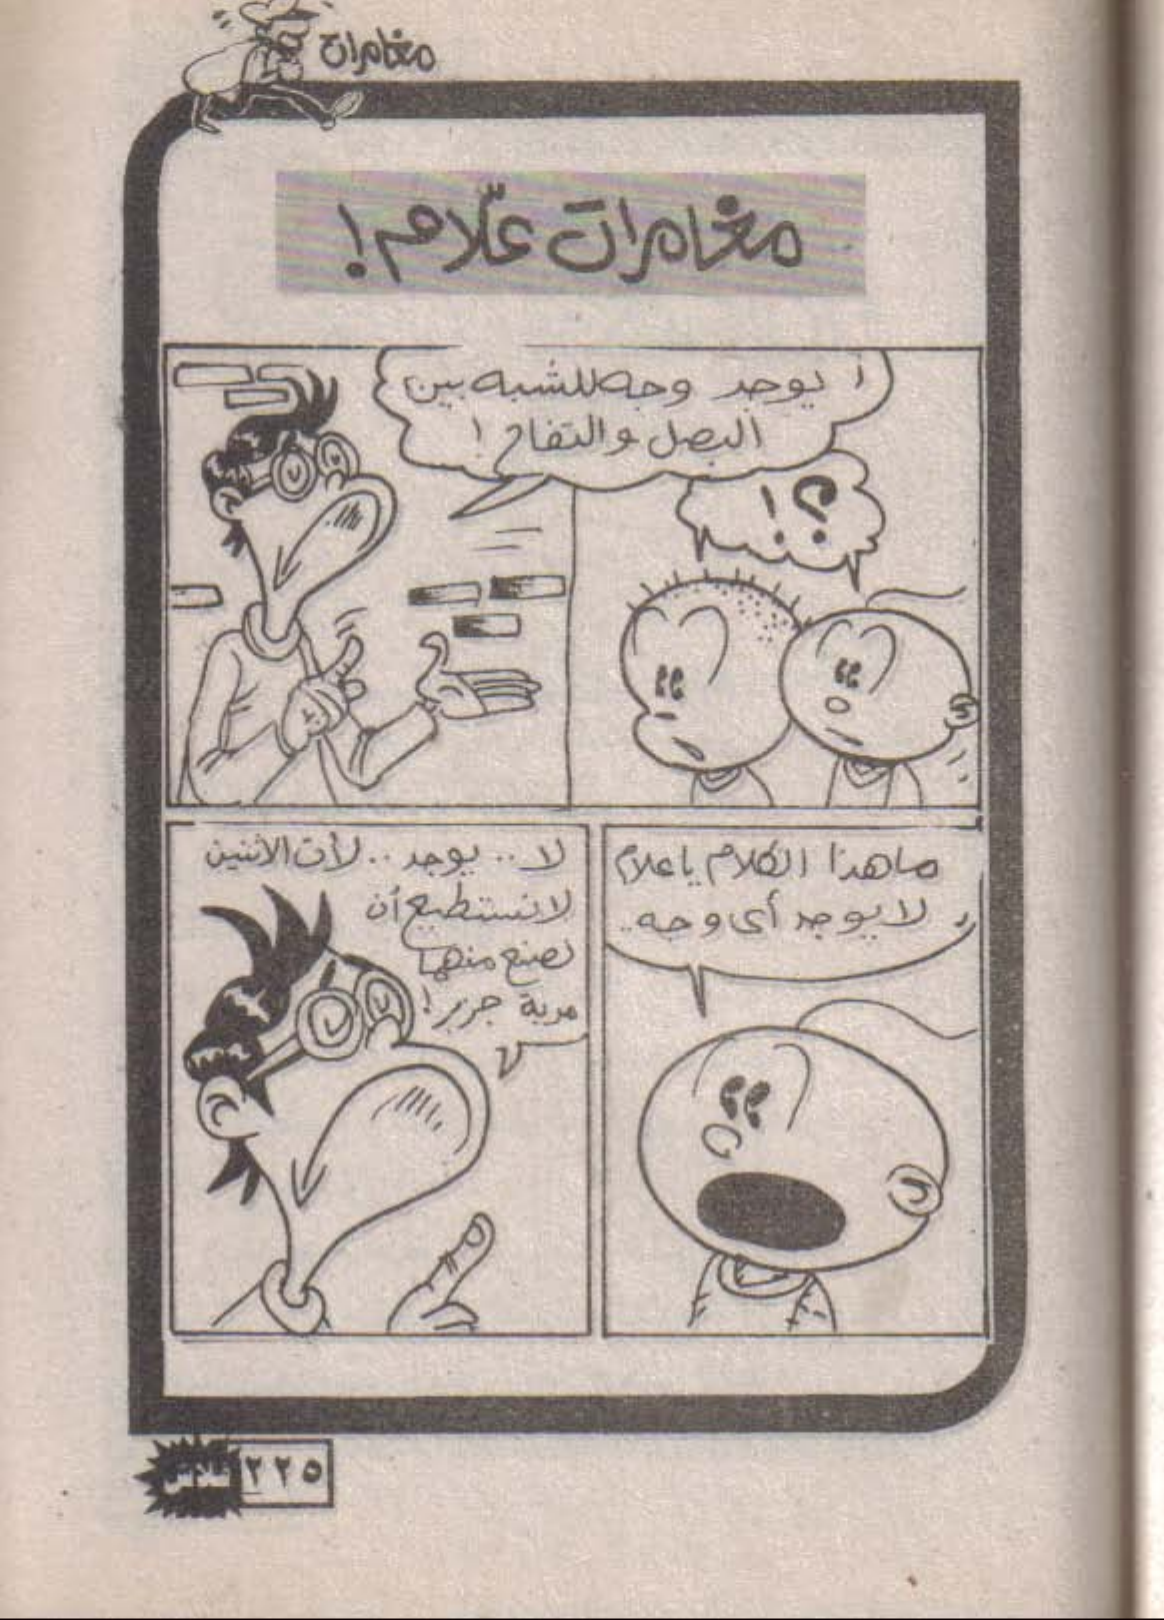 مغامرات
مغامرات علّام!
أ يوجد وجه للشبه بين
البصل والتفاح!
؟!
ما هذا الكلام يا علام
لا يوجد أى وجه..
لا .. يوجد .. لأن الاثنين
لا نستطيع أن
نصنع منهما
مربة جزر!
٢٢٥